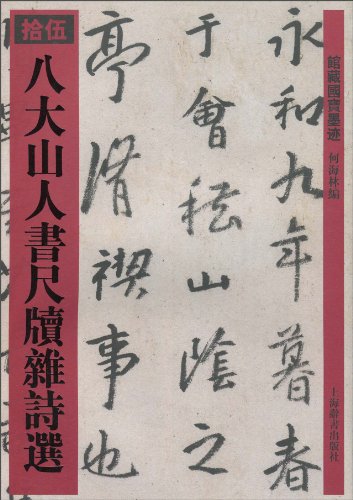 館藏國寶墨迹
何海林編
上海辭書出版社
永和九年暮春
于會稽山陰之
亭脩禊事也
拾伍
八大山人書尺牘雜詩選